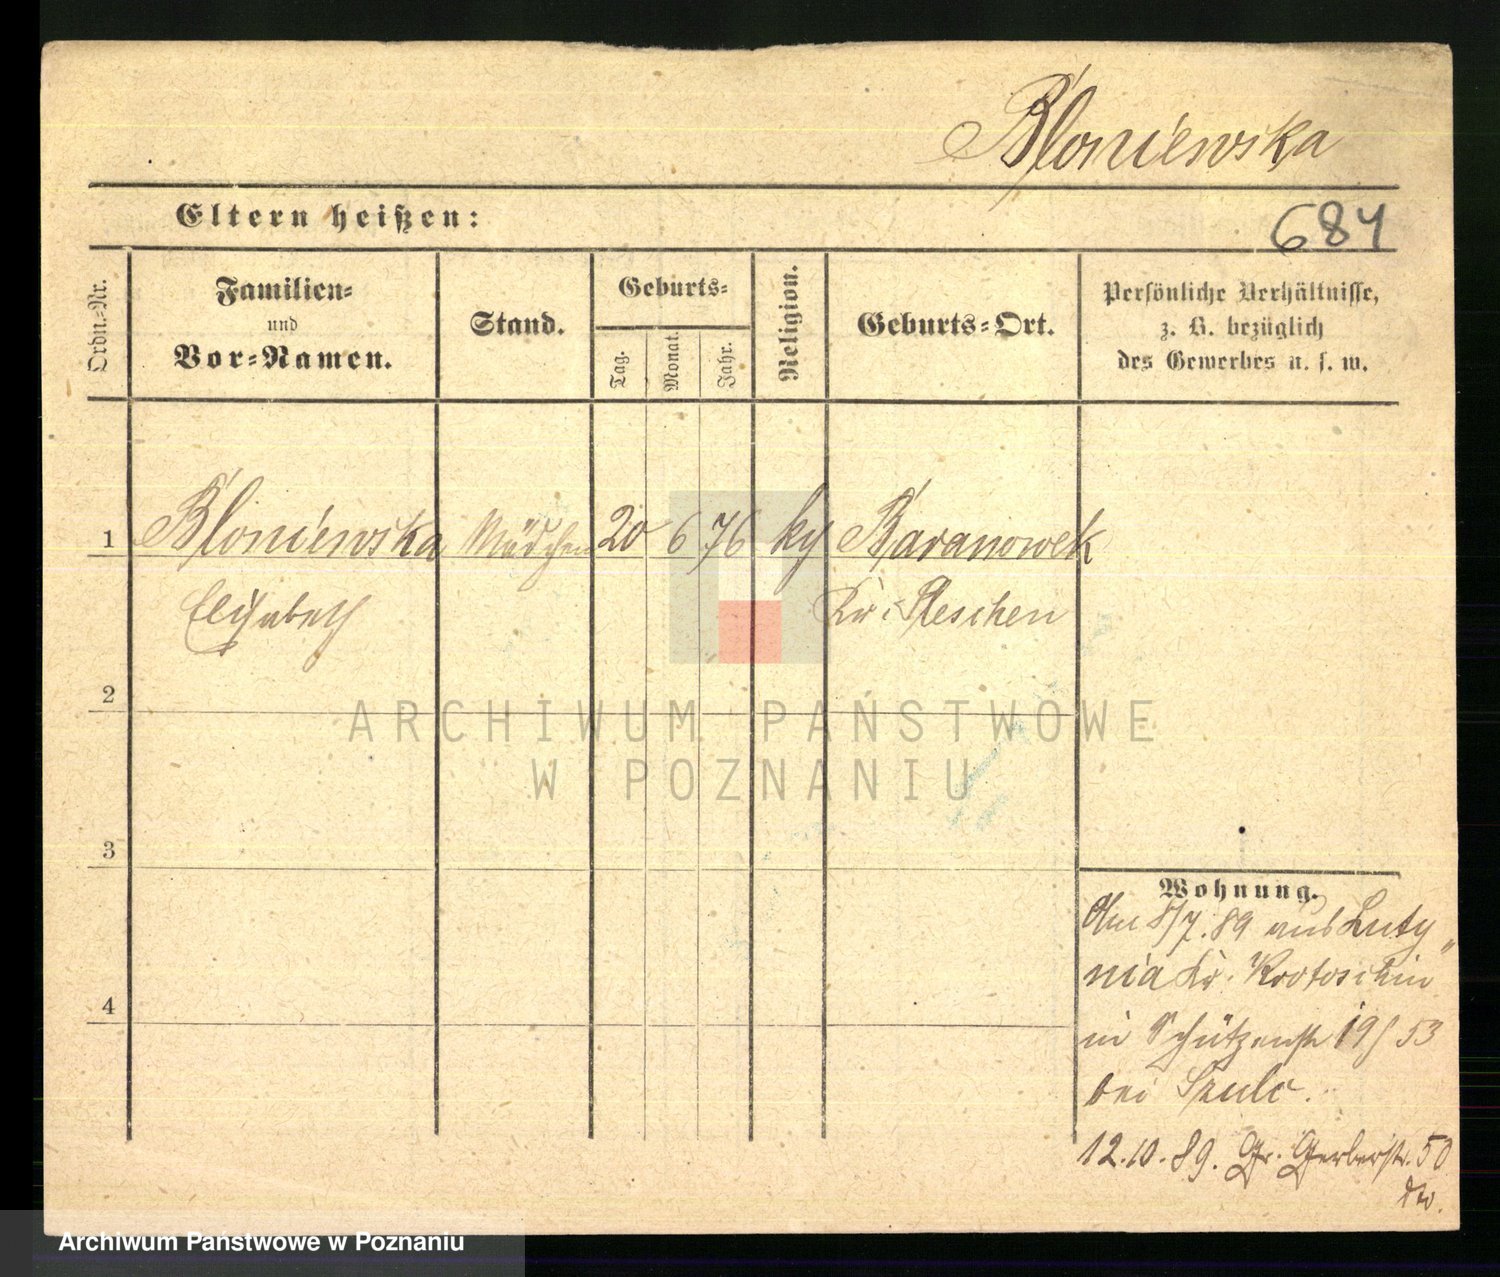 Bloniewska
Eltern heißen:
684
Ordn.-Nr.
Familien-
und
Vor-Namen.
Stand.
Geburts-
Tag.
Monat.
Jahr.
Religion.
Geburts-Ort.
Persönliche Verhältnisse,
z. B. bezüglich
des Gewerbes u. s. w.
1 Bloniewska Mädchen 20 6 76 Baranowek
Elisabeth Kr. Pleschen
2
ARCHIWUM PAŃSTWOWE
W POZNANIU
3
4
Wohnung.
8/7.89 aus Luty„
nia Kr. Krotoschin
in Schützenstr 19/53
bei Szulc.
12.10.89. Gr. Gerberstr. 50
Archiwum Państwowe w Poznaniu